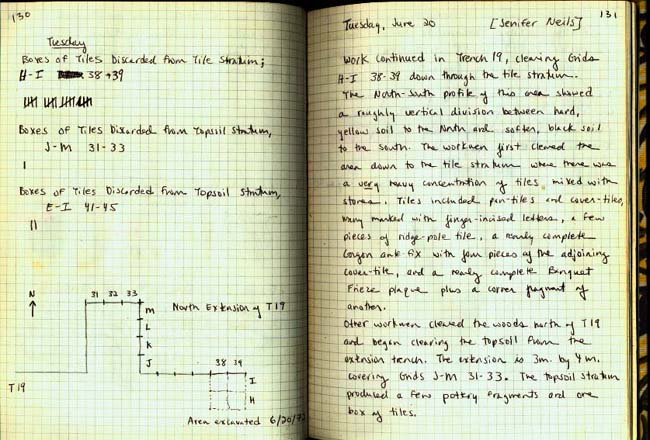 130
Tuesday
Boxes of Tiles Discarded from Tile Stratum;
H-I 38+39
Boxes of Tiles Discarded from Topsoil Stratum,
J-M 31-33
I
Boxes of Tiles Discarded from Topsoil Stratum,
E-I 41-45
II
N
31 32 33
North Extension of T19
M
L
K
J
38 39
I
H
T19
Area excavated 6/20/72
131
Tuesday, June 20 [Jenifer Neils]
Work continued in Trench 19, clearing Grids
H-I 38-39 down through the tile stratum.
The North-South profile of this area showed
a roughly vertical division between hard,
yellow soil to the North and softer, black soil
to the south. The workmen first cleared the
area down to the tile stratum where there was
a very heavy concentration of tiles mixed with
stones. Tiles included pan-tiles and cover-tiles,
many marked with finger-incised letters, a few
pieces of ridge-pole tile, a nearly complete
Gorgon antefix with four pieces of the adjoining
cover-tile, and a nearly complete Banquet
Frieze plaque plus a corner fragment of
another.
Other workmen cleared the woods north of T19
and began clearing the topsoil from the
extension trench. The extension is 3m. by 4m.
covering Grids J-M 31-33. The topsoil stratum
produced a few pottery fragments and one
box of tiles.